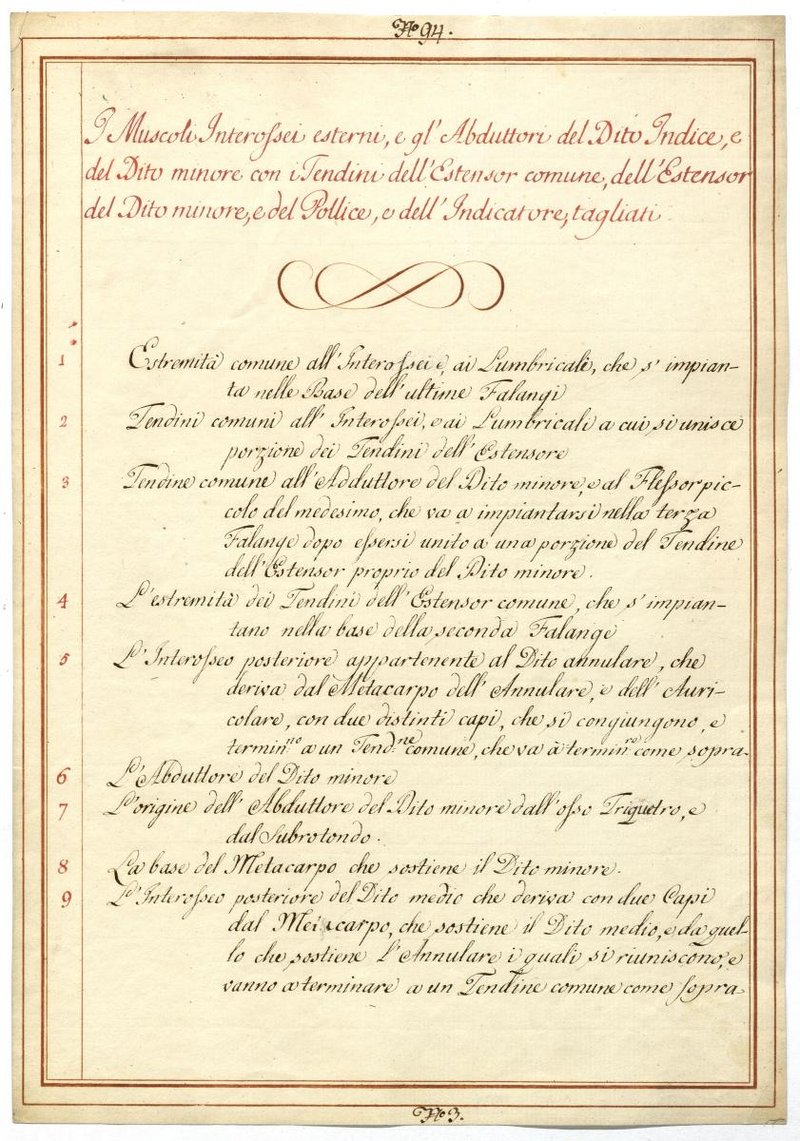 No. 94.
I Muscoli Interossei esterni, e gl' Abduttori del Dito Indice, e
del Dito minore con i Tendini dell' Estensor comune, dell' Estensor
del Dito minore, e del Pollice, e dell' Indicatore, tagliati.
1 Estremità comune all' Interossei e, ai Lumbricali, che s' impian-
ta nelle Base dell' ultime Falangi
2 Tendini comuni all' Interossei, e ai Lumbricali a cui, si unisce
porzione dei Tendini dell' Estensore
3 Tendine comune all' Adduttore del Dito minore, e al Flessor pic-
colo del medesimo, che va a impiantarsi nella terza
Falange dopo essersi unito a una porzione del Tendine
dell' Estensor proprio del Dito minore.
4 L' estremità dei Tendini dell' Estensor comune, che s' impian-
tano nella base della seconda Falange
5 L' Interosseo posteriore appartenente al Dito annulare, che
deriva dal Metacarpo dell' Annulare, e dell' Auri-
colare, con due distinti capi, che si congiungono, e
termin.no a un Tend.ne comune, che va à termin.ro come sopra.
6 L' Abduttore del Dito minore
7 L' origine dell' Abduttore del Dito minore dall' osso Triquetro, e
dal Subrotondo.
8 La base del Metacarpo che sostiene il Dito minore.
9 L' Interosseo posteriore del Dito medio che deriva con due Capi
dal Metacarpo, che sostiene il Dito medio, e da quel-
lo che sostiene l' Annulare i quali si riuniscono, e
vanno a terminare a un Tendine comune come sopra
No. 3.